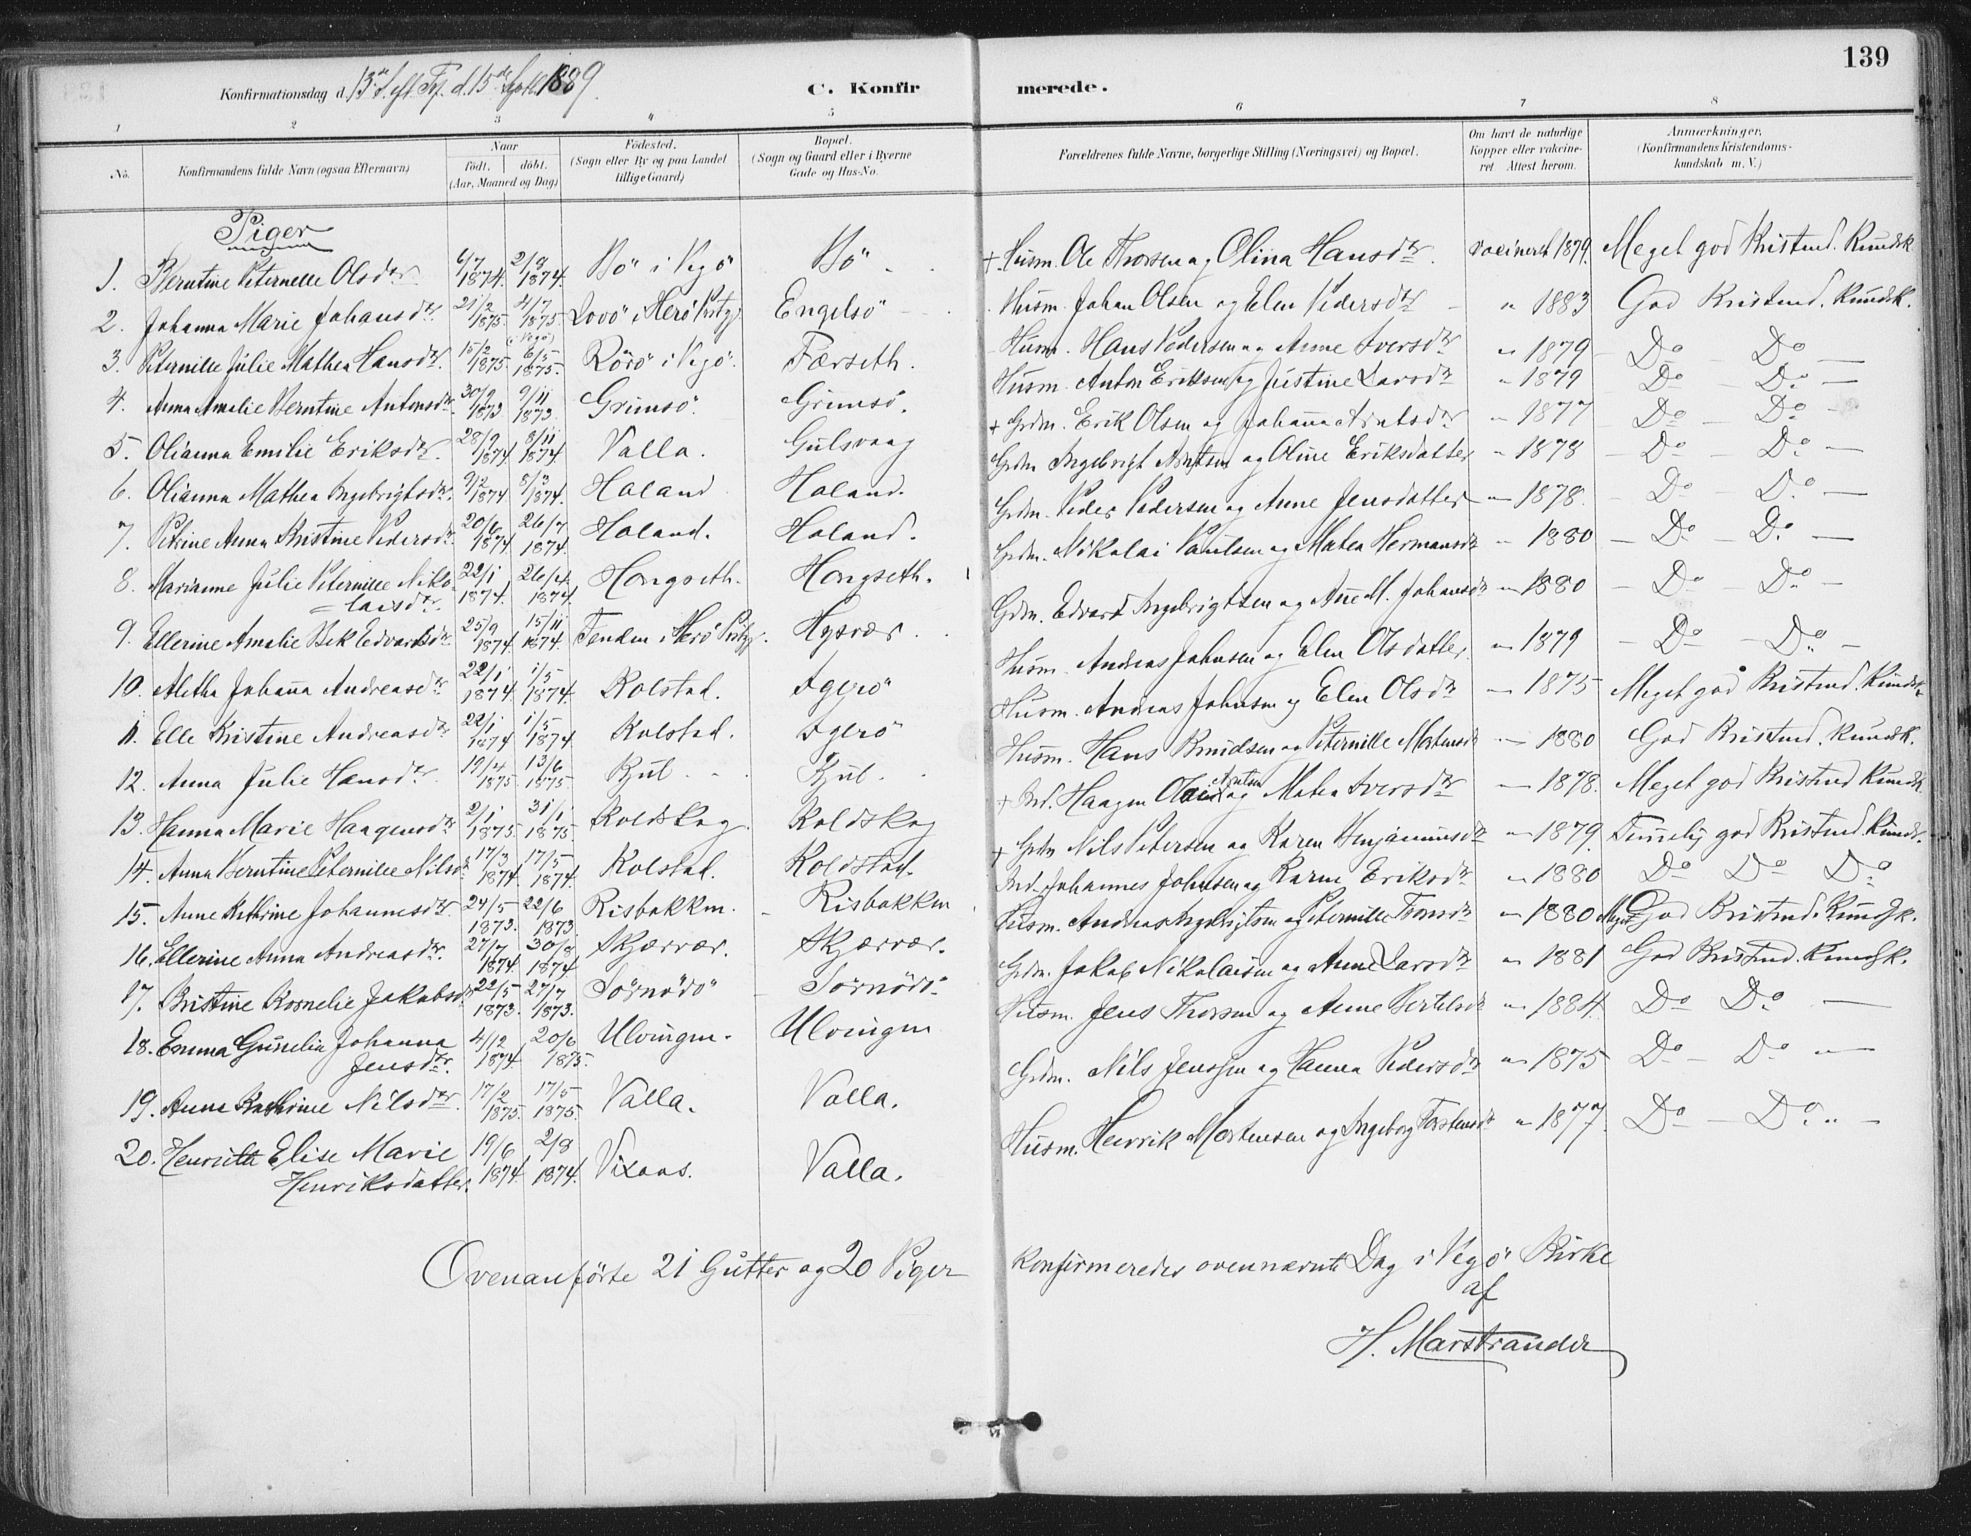 139
Konfirmationsdag d. 13de S. eft. Tr. d. 15de Septbr. 1889.
C. Konfirmerede.
1 2 3 4 5 6 7 8
No.
Konfirmandens fulde Navn (ogsaa Efternavn)
Naar født. døbt. (Aar, Maaned og Dag)
Fødested. (Sogn eller By og paa Landet tillige Gaard)
Bopæl. (Sogn og Gaard eller i Byerne Gade og Hus-No.
Forældrenes fulde Navne, borgerlige Stilling (Næringsvei) og Bopæl.
Om havt de naturlige Kopper eller vakcineret Attest herom.
Anmærkninger. (Konfirmandens Kristendomskundskab m. V.)
Piger
1. Berntine Peternelle Olsdtr. 6/7 1874. 2/8 1874. Bö i Vegö Bö + Husm. Ole Thorsen og Olina Hansdtr. vaccineret 1879. Meget god Kristend. Kundsk.
2. Johanna Marie Johansdtr. 21/2 1875. 4/7 1875. (i Vegö) Lovö i Herö Prstgj. Engelsö Husm. Johan Olsen og Elen Pedersdtr " 1883 God Kristend. Kundsk.
3. Peternille Julie Mathea Hansdtr. 15/2 1875 6/5 1875. Rörö i Vegö. Færseth. Husm. Hans Pedersen og Anne Iversdtr " 1879 Do Do
4. Anna Amalie Berntine Antonsdtr. 30/9 1873 9/11 1873. Grimsö. Grimsö. Husm. Anton Eriksen og Justine Larsdtr " 1879 Do Do
5. Olianna Emilie Eriksdtr. 28/9 1874. 8/11 1874. Valla. Gulsvaag + Grdm. Erik Olsen og Johanna Arntsdtr " 1877 Do Do
6. Olianna Mathea Ingebrigtsdtr. 9/2 1874 8/3 1874. Holand Holand. Grdm Ingebrigt Arntsen og Oline Eriksdatter " 1878 Do Do
7. Petrine Anna Kristine Pedersdtr. 20/6 1874 26/7 1874. Holand. Holand. Grdm. Peder Pedersen og Anne Jensdatter " 1878. Do Do
8. Marianne Julie Peternille Nikolaisdtr. 22/1 1874. 26/4 1874. Hongseth. Hongseth. Grdm. Nikolai Paulsen og Matea Hermansdtr " 1880 Do Do
9. Ellerine Amalie Bek Edvardsdtr 25/9 1874 15/11 1874. Tenden i Herö Prstgj. Hysvær Grdm. Edvard Ingebrigtsen og Ane M. Johansdtr " 1880 Do Do
10. Aletha Johanna Andreasdtr 22/1 1874. 1/5 1874. Kolstad. Igerö Husm. Andreas Johnsen og Elen Olsdatter " 1879 Do Do
11. Elle Kristine Andreasdtr 22/1 1874 1/5 1874 Kolstad. Igerö Husm. Andreas Johnsen og Elen Olsdtr " 1875 Meget god Kristend. Kundsk.
12. Anna Julie Hansdtr 19/4 1875 13/6 1875. Kjul Kjul Husm. Hans Knudsen og Peternille Mortensdtr 1880 God Kristend. Kundsk.
13. Hanna Marie Haagensdtr 2/1 1875. 31/1 1875. Koldskog Koldskog + Ind. Haagen Arntsen og Matea Iversdtr 1878. Meget god Kristend Kundsk
14. Anna Berntine Peternille Nilsdtr 17/3 1874. 17/5 1874. Kolstad. Koldstad. + Grdm Nils Petersen og Karen Benjaminsdtr " 1879. Temmelig god Kristend. Kundsk.
15. Anne Kathrine Johannesdtr. 24/5 1873. 22/6 1873 Risbakken. Risbakken Ind. Johannes Johnsen og Karen Eriksdtr " 1880 Do Do Do
16. Ellerine Anna Andreasdtr. 27/7 1874. 30/8 1874 Skjærvær. Skjærvær. Husm. Andreas Ingebrigtsen og Peternille Tronsdtr " 1880 Meget God Kristend. Kundsk.
17. Kristine Kornelie Jakobsdtr 22/5 1873. 27/7 1873. Sörnödö Sörnödö. Grdm. Jakob Nikolaisen og Anne Larsdtr " 1881 God Kristend. Kundsk.
18. Emma Gunelia Johanna Jensdtr. 4/12 1874 20/6 1875. Ulvingen. Ulvingen Husm. Jens Thorsen og Anne Bertelsdtr " 1884. Do Do
19. Anne Kathrine Nilsdtr. 17/2 1875. 17/5 1875. Valla. Valla. Grdm. Nils Jenssen og Hanna Pedersdtr " 1875 Do Do
20. Henriette Elise Marie Henriksdatter. 19/6 1874. 2/8 1874. Vixaas. Valla. Husm. Henrik Mortensen og Ingeborg Torstensdtr " 1877 Do Do
Ovenanförte 21 Gutter og 20 Piger konfirmeredes ovennævnte Dag i Vegö Kirke
af
H. Marstrander